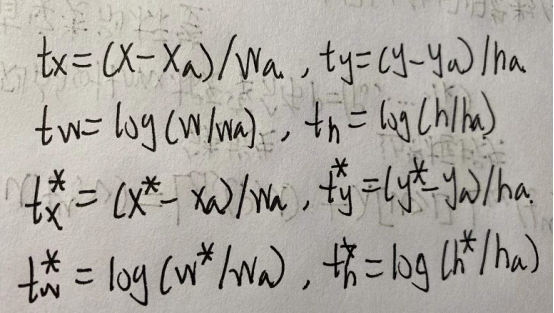 tx = (x - xa)/wa , ty = (y - ya)/ha
tw = log(w/wa) , th = log(h/ha)
tx* = (x* - xa)/wa , ty* = (y* - ya)/ha.
tw* = log(w*/wa) , th* = log(h*/ha)